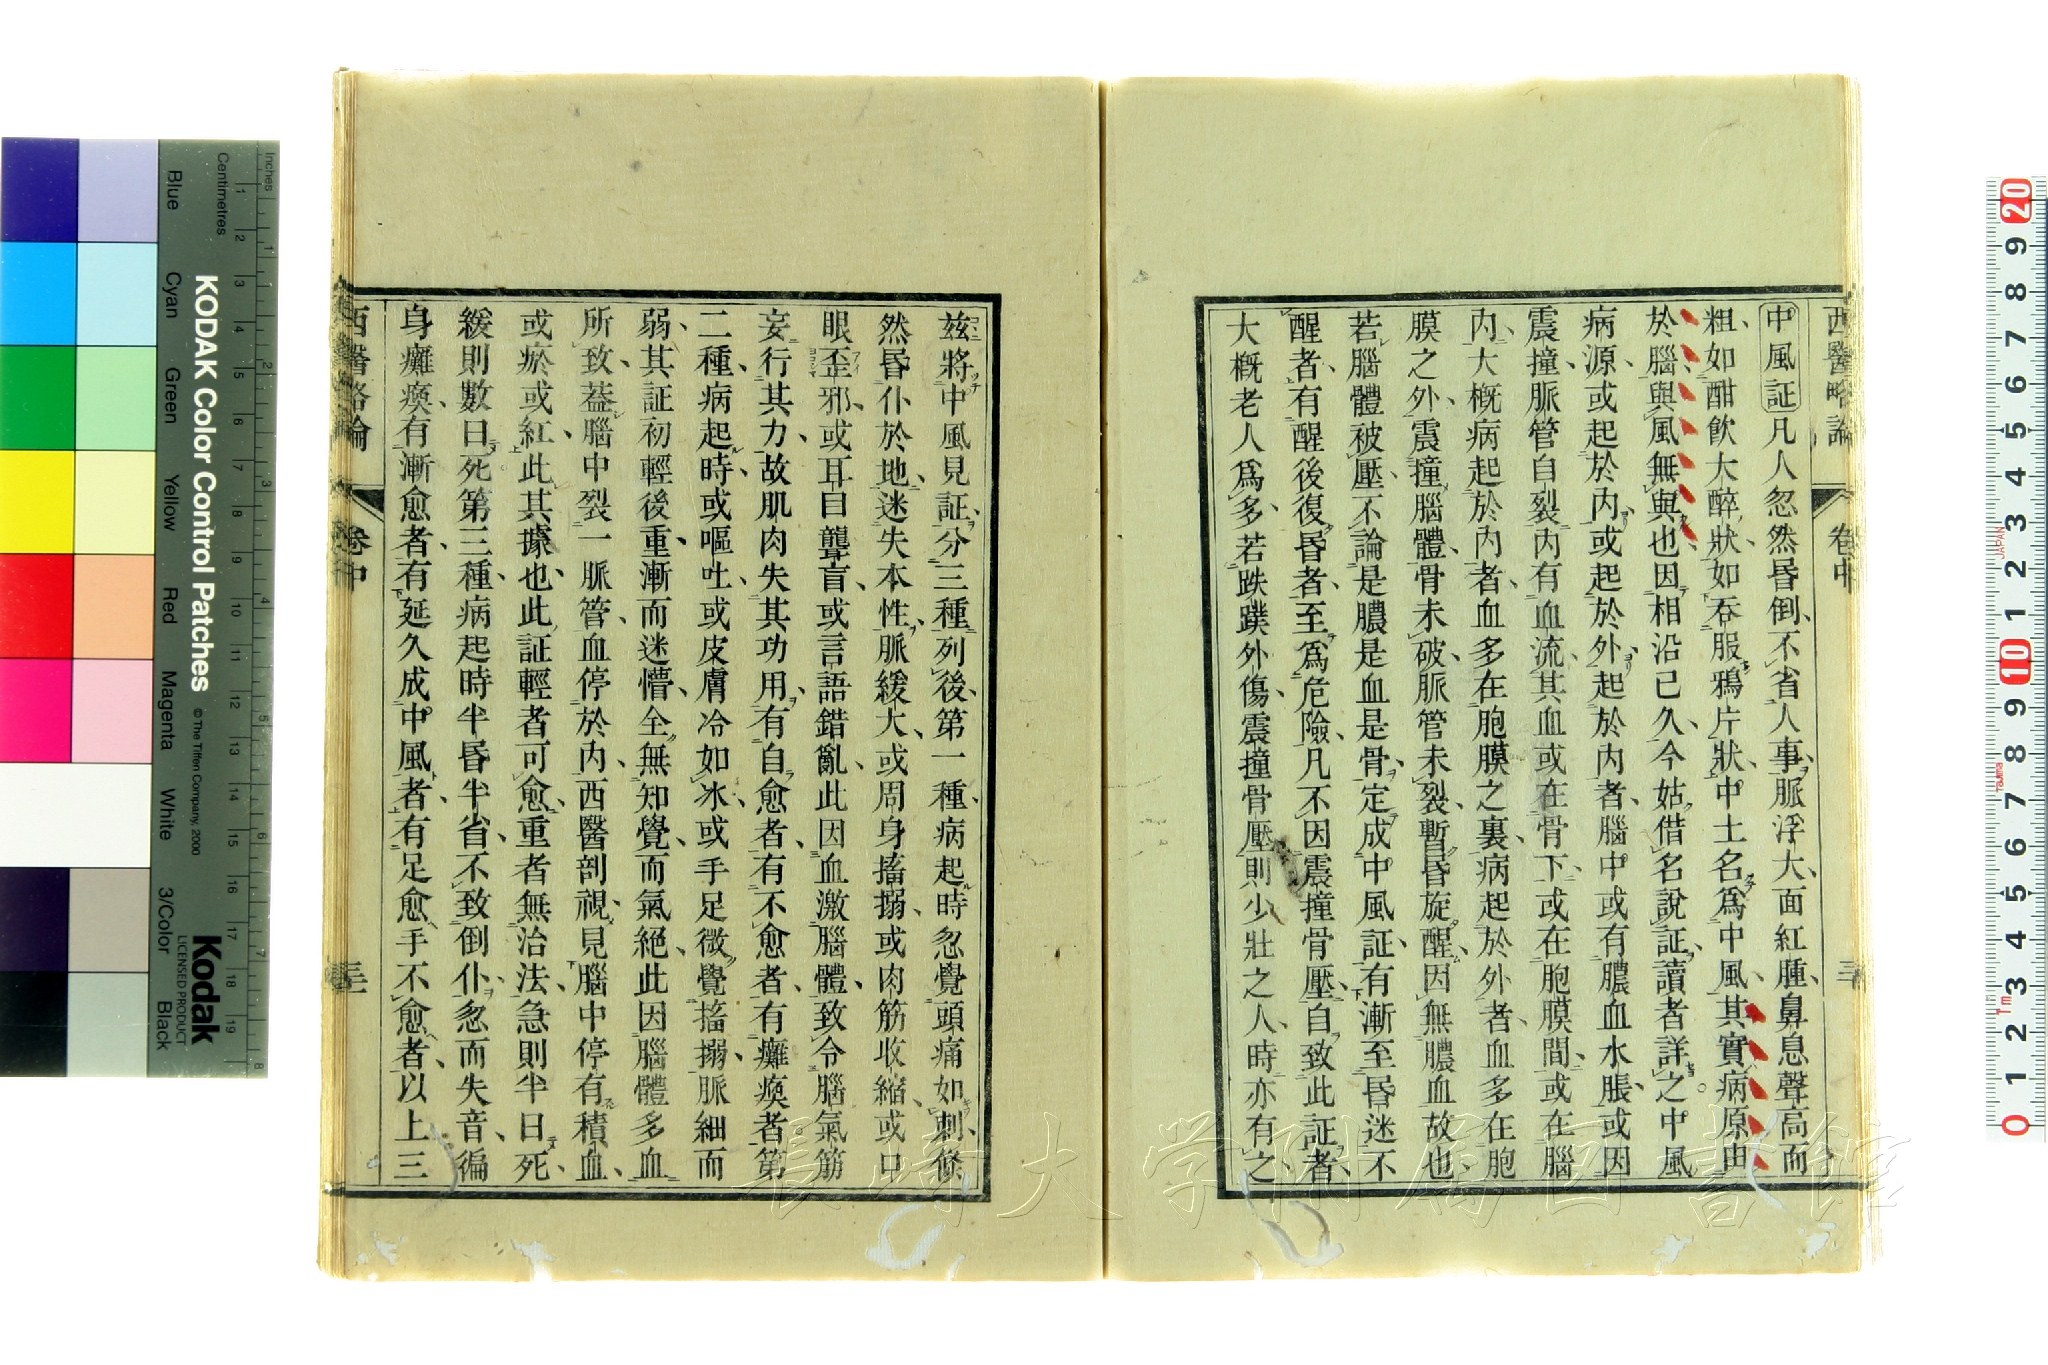 西醫略論
卷中
中風証凡人忽然昏倒不省人事脈浮大面紅腫鼻息聲高而
粗如酣飲大醉狀如吞服鴉片狀中土名爲中風其實病原由
於腦與風無與也因相沿已久今姑借名說証讀者詳之中風
病源或起於内或起於外起於内者腦中或有膿血水脹或因
震撞脈管自裂内有血流其血或在骨下或在胞膜間或在腦
内大概病起於内者血多在胞膜之裏病起於外者血多在胞
膜之外震撞腦體骨未破脈管未裂暫昏旋醒因無膿血故也
若腦體被壓不論是膿是血是骨定成中風証有漸至昏迷不
醒者有醒後復昏者至爲危險凡不因震撞骨壓自致此証者
大概老人爲多若跌蹼外傷震撞骨壓則少壯之人時亦有之
茲將中風見証分三種列後第一種病起時忽覺頭痛如刺倐
然昏仆於地迷失本性脈緩大或周身搐搦或肉筋收縮或口
眼歪邪或耳目聾盲或言語錯亂此因血激腦體致令腦氣筋
妄行其力故肌肉失其功用有自愈者有不愈者有癱瘓者第
二種病起時或嘔吐或皮膚冷如冰或手足微覺搐搦脈細而
弱其証初輕後重漸而迷懵全無知覺而氣絕此因腦體多血
所致葢腦中裂一脈管血停於内西醫剖視見腦中停有積血
或瘀或紅此其據也此証輕者可愈重者無治法急則半日死
緩則數日死第三種病起時半昏半省不致倒仆忽而失音徧
身癱瘓有漸愈者有延久成中風者有足愈手不愈者以上三
西醫略論
卷中
三二
KODAK Color Control Patches
© The Tiffen Company, 2000
Kodak
LICENSED PRODUCT
Inches
Centimetres
Blue
Cyan
Green
Yellow
Red
Magenta
White
3/Color
Black
長崎大学附属図書館